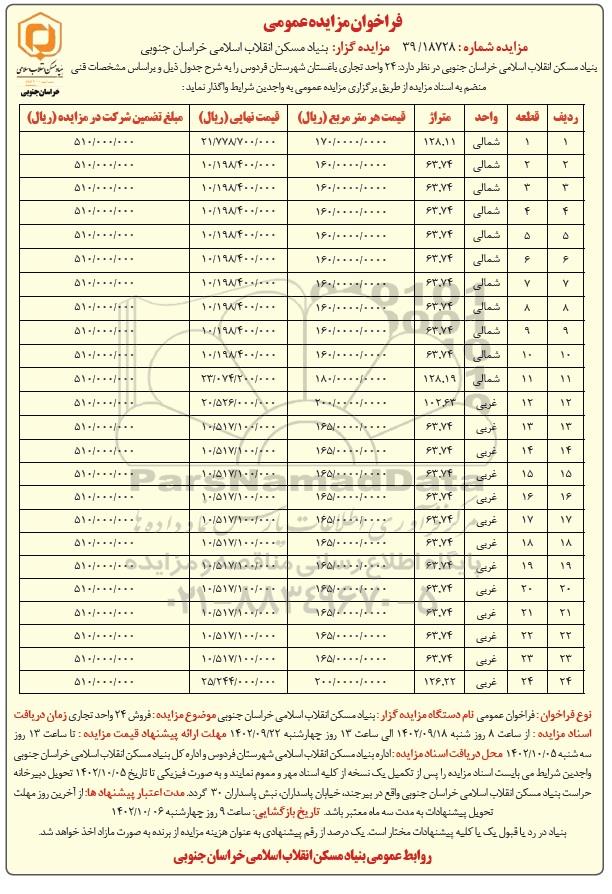 فراخوان مزایده عمومی
بنیاد مسکن انقلاب اسلامی
خراسان جنوبی
مزایده شماره : ۳۹/۱۸۷۲۸ مزایده گزار: بنیاد مسکن انقلاب اسلامی خراسان جنوبی
بنیاد مسکن انقلاب اسلامی خراسان جنوبی در نظر دارد: ۲۴ واحد تجاری باغستان شهرستان فردوس را به شرح جدول ذیل و براساس مشخصات فنی
منضم به اسناد مزایده از طریق برگزاری مزایده عمومی به واجدین شرایط واگذار نماید :
ردیف قطعه واحد متراژ قیمت هر متر مربع (ریال) قیمت نهایی (ریال) مبلغ تضمین شرکت در مزایده (ریال)
۱ ۱ شمالی ۱۲۸.۱۱ ۱۷۰/۰۰۰۰/۰۰۰۰ ۲۱/۷۷۸/۷۰۰/۰۰۰ ۵۱۰/۰۰۰/۰۰۰
۲ ۲ شمالی ۶۳.۷۴ ۱۶۰/۰۰۰۰/۰۰۰۰ ۱۰/۱۹۸/۴۰۰/۰۰۰ ۵۱۰/۰۰۰/۰۰۰
۳ ۳ شمالی ۶۳.۷۴ ۱۶۰/۰۰۰۰/۰۰۰۰ ۱۰/۱۹۸/۴۰۰/۰۰۰ ۵۱۰/۰۰۰/۰۰۰
۴ ۴ شمالی ۶۳.۷۴ ۱۶۰/۰۰۰۰/۰۰۰۰ ۱۰/۱۹۸/۴۰۰/۰۰۰ ۵۱۰/۰۰۰/۰۰۰
۵ ۵ شمالی ۶۳.۷۴ ۱۶۰/۰۰۰۰/۰۰۰۰ ۱۰/۱۹۸/۴۰۰/۰۰۰ ۵۱۰/۰۰۰/۰۰۰
۶ ۶ شمالی ۶۳.۷۴ ۱۶۰/۰۰۰۰/۰۰۰۰ ۱۰/۱۹۸/۴۰۰/۰۰۰ ۵۱۰/۰۰۰/۰۰۰
۷ ۷ شمالی ۶۳.۷۴ ۱۶۰/۰۰۰۰/۰۰۰۰ ۱۰/۱۹۸/۴۰۰/۰۰۰ ۵۱۰/۰۰۰/۰۰۰
۸ ۸ شمالی ۶۳.۷۴ ۱۶۰/۰۰۰۰/۰۰۰۰ ۱۰/۱۹۸/۴۰۰/۰۰۰ ۵۱۰/۰۰۰/۰۰۰
۹ ۹ شمالی ۶۳.۷۴ ۱۶۰/۰۰۰۰/۰۰۰۰ ۱۰/۱۹۸/۴۰۰/۰۰۰ ۵۱۰/۰۰۰/۰۰۰
۱۰ ۱۰ شمالی ۶۳.۷۴ ۱۶۰/۰۰۰۰/۰۰۰۰ ۱۰/۱۹۸/۴۰۰/۰۰۰ ۵۱۰/۰۰۰/۰۰۰
۱۱ ۱۱ شمالی ۱۲۸.۱۹ ۱۸۰/۰۰۰۰/۰۰۰۰ ۲۳/۰۷۴/۲۰۰/۰۰۰ ۵۱۰/۰۰۰/۰۰۰
۱۲ ۱۲ غربی ۱۰۲.۶۳ ۲۰۰/۰۰۰۰/۰۰۰۰ ۲۰/۵۲۶/۰۰۰/۰۰۰ ۵۱۰/۰۰۰/۰۰۰
۱۳ ۱۳ غربی ۶۳.۷۴ ۱۶۵/۰۰۰۰/۰۰۰۰ ۱۰/۵۱۷/۱۰۰/۰۰۰ ۵۱۰/۰۰۰/۰۰۰
۱۴ ۱۴ غربی ۶۳.۷۴ ۱۶۵/۰۰۰۰/۰۰۰۰ ۱۰/۵۱۷/۱۰۰/۰۰۰ ۵۱۰/۰۰۰/۰۰۰
۱۵ ۱۵ غربی ۶۳.۷۴ ۱۶۵/۰۰۰۰/۰۰۰۰ ۱۰/۵۱۷/۱۰۰/۰۰۰ ۵۱۰/۰۰۰/۰۰۰
۱۶ ۱۶ غربی ۶۳.۷۴ ۱۶۵/۰۰۰۰/۰۰۰۰ ۱۰/۵۱۷/۱۰۰/۰۰۰ ۵۱۰/۰۰۰/۰۰۰
۱۷ ۱۷ غربی ۶۳.۷۴ ۱۶۵/۰۰۰۰/۰۰۰۰ ۱۰/۵۱۷/۱۰۰/۰۰۰ ۵۱۰/۰۰۰/۰۰۰
۱۸ ۱۸ غربی ۶۳.۷۴ ۱۶۵/۰۰۰۰/۰۰۰۰ ۱۰/۵۱۷/۱۰۰/۰۰۰ ۵۱۰/۰۰۰/۰۰۰
۱۹ ۱۹ غربی ۶۳.۷۴ ۱۶۵/۰۰۰۰/۰۰۰۰ ۱۰/۵۱۷/۱۰۰/۰۰۰ ۵۱۰/۰۰۰/۰۰۰
۲۰ ۲۰ غربی ۶۳.۷۴ ۱۶۵/۰۰۰۰/۰۰۰۰ ۱۰/۵۱۷/۱۰۰/۰۰۰ ۵۱۰/۰۰۰/۰۰۰
۲۱ ۲۱ غربی ۶۳.۷۴ ۱۶۵/۰۰۰۰/۰۰۰۰ ۱۰/۵۱۷/۱۰۰/۰۰۰ ۵۱۰/۰۰۰/۰۰۰
۲۲ ۲۲ غربی ۶۳.۷۴ ۱۶۵/۰۰۰۰/۰۰۰۰ ۱۰/۵۱۷/۱۰۰/۰۰۰ ۵۱۰/۰۰۰/۰۰۰
۲۳ ۲۳ غربی ۶۳.۷۴ ۱۶۵/۰۰۰۰/۰۰۰۰ ۱۰/۵۱۷/۱۰۰/۰۰۰ ۵۱۰/۰۰۰/۰۰۰
۲۴ ۲۴ غربی ۱۲۶.۲۲ ۲۰۰/۰۰۰۰/۰۰۰۰ ۲۵/۲۴۴/۰۰۰/۰۰۰ ۵۱۰/۰۰۰/۰۰۰
ParsNamadData
مرکز فرآوری اطلاعات پارس نماد داده ها
پایگاه اطلاع رسانی مناقصه و مزایده
۰۲۱-۸۸۳۴۹۶۷۰-۵
نوع فراخوان : فراخوان عمومی نام دستگاه مزایده گزار : بنیاد مسکن انقلاب اسلامی خراسان جنوبی موضوع مزایده : فروش ۲۴ واحد تجاری زمان دریافت
اسناد مزایده : از ساعت ۸ روز شنبه ۱۴۰۲/۰۹/۱۸ الی ساعت ۱۳ روز چهارشنبه ۱۴۰۲/۰۹/۲۲ مهلت ارائه پیشنهاد قیمت مزایده : تا ساعت ۱۳ روز
سه شنبه ۱۴۰۲/۱۰/۰۵ محل دریافت اسناد مزایده : اداره بنیاد مسکن انقلاب اسلامی شهرستان فردوس و اداره کل بنیاد مسکن انقلاب اسلامی خراسان جنوبی
واجدین شرایط می بایست اسناد مزایده را پس از تکمیل یک نسخه از کلیه اسناد مهر و مموم نمایند و به صورت فیزیکی تا تاریخ ۱۴۰۲/۱۰/۰۵ تحویل دبیرخانه
حراست بنیاد مسکن انقلاب اسلامی خراسان جنوبی واقع در بیرجند، خیابان پاسداران، نبش پاسداران ۳۰ گردد. مدت اعتبار پیشنهاد ها : از آخرین روز مهلت
تحویل پیشنهادات به مدت سه ماه معتبر باشد. تاریخ بازگشایی: ساعت ۹ روز چهارشنبه ۱۴۰۲/۱۰/۰۶
بنیاد در رد یا قبول یک یا کلیه پیشنهادات مختار است. یک درصد از رقم پیشنهادی به عنوان هزینه مزایده از برنده به صورت مازاد اخذ خواهد شد.
روابط عمومی بنیاد مسکن انقلاب اسلامی خراسان جنوبی